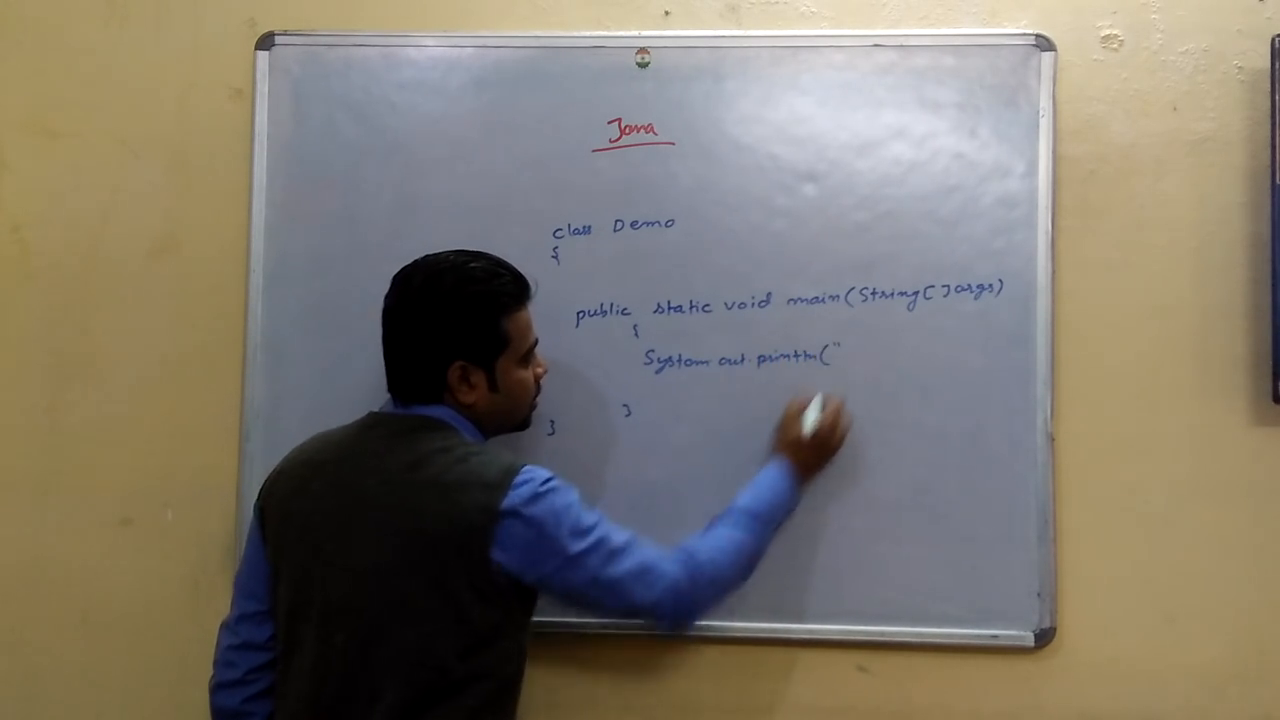 Java
class Demo
{
public static void main(String[] args)
{
System.out.println("
}
}